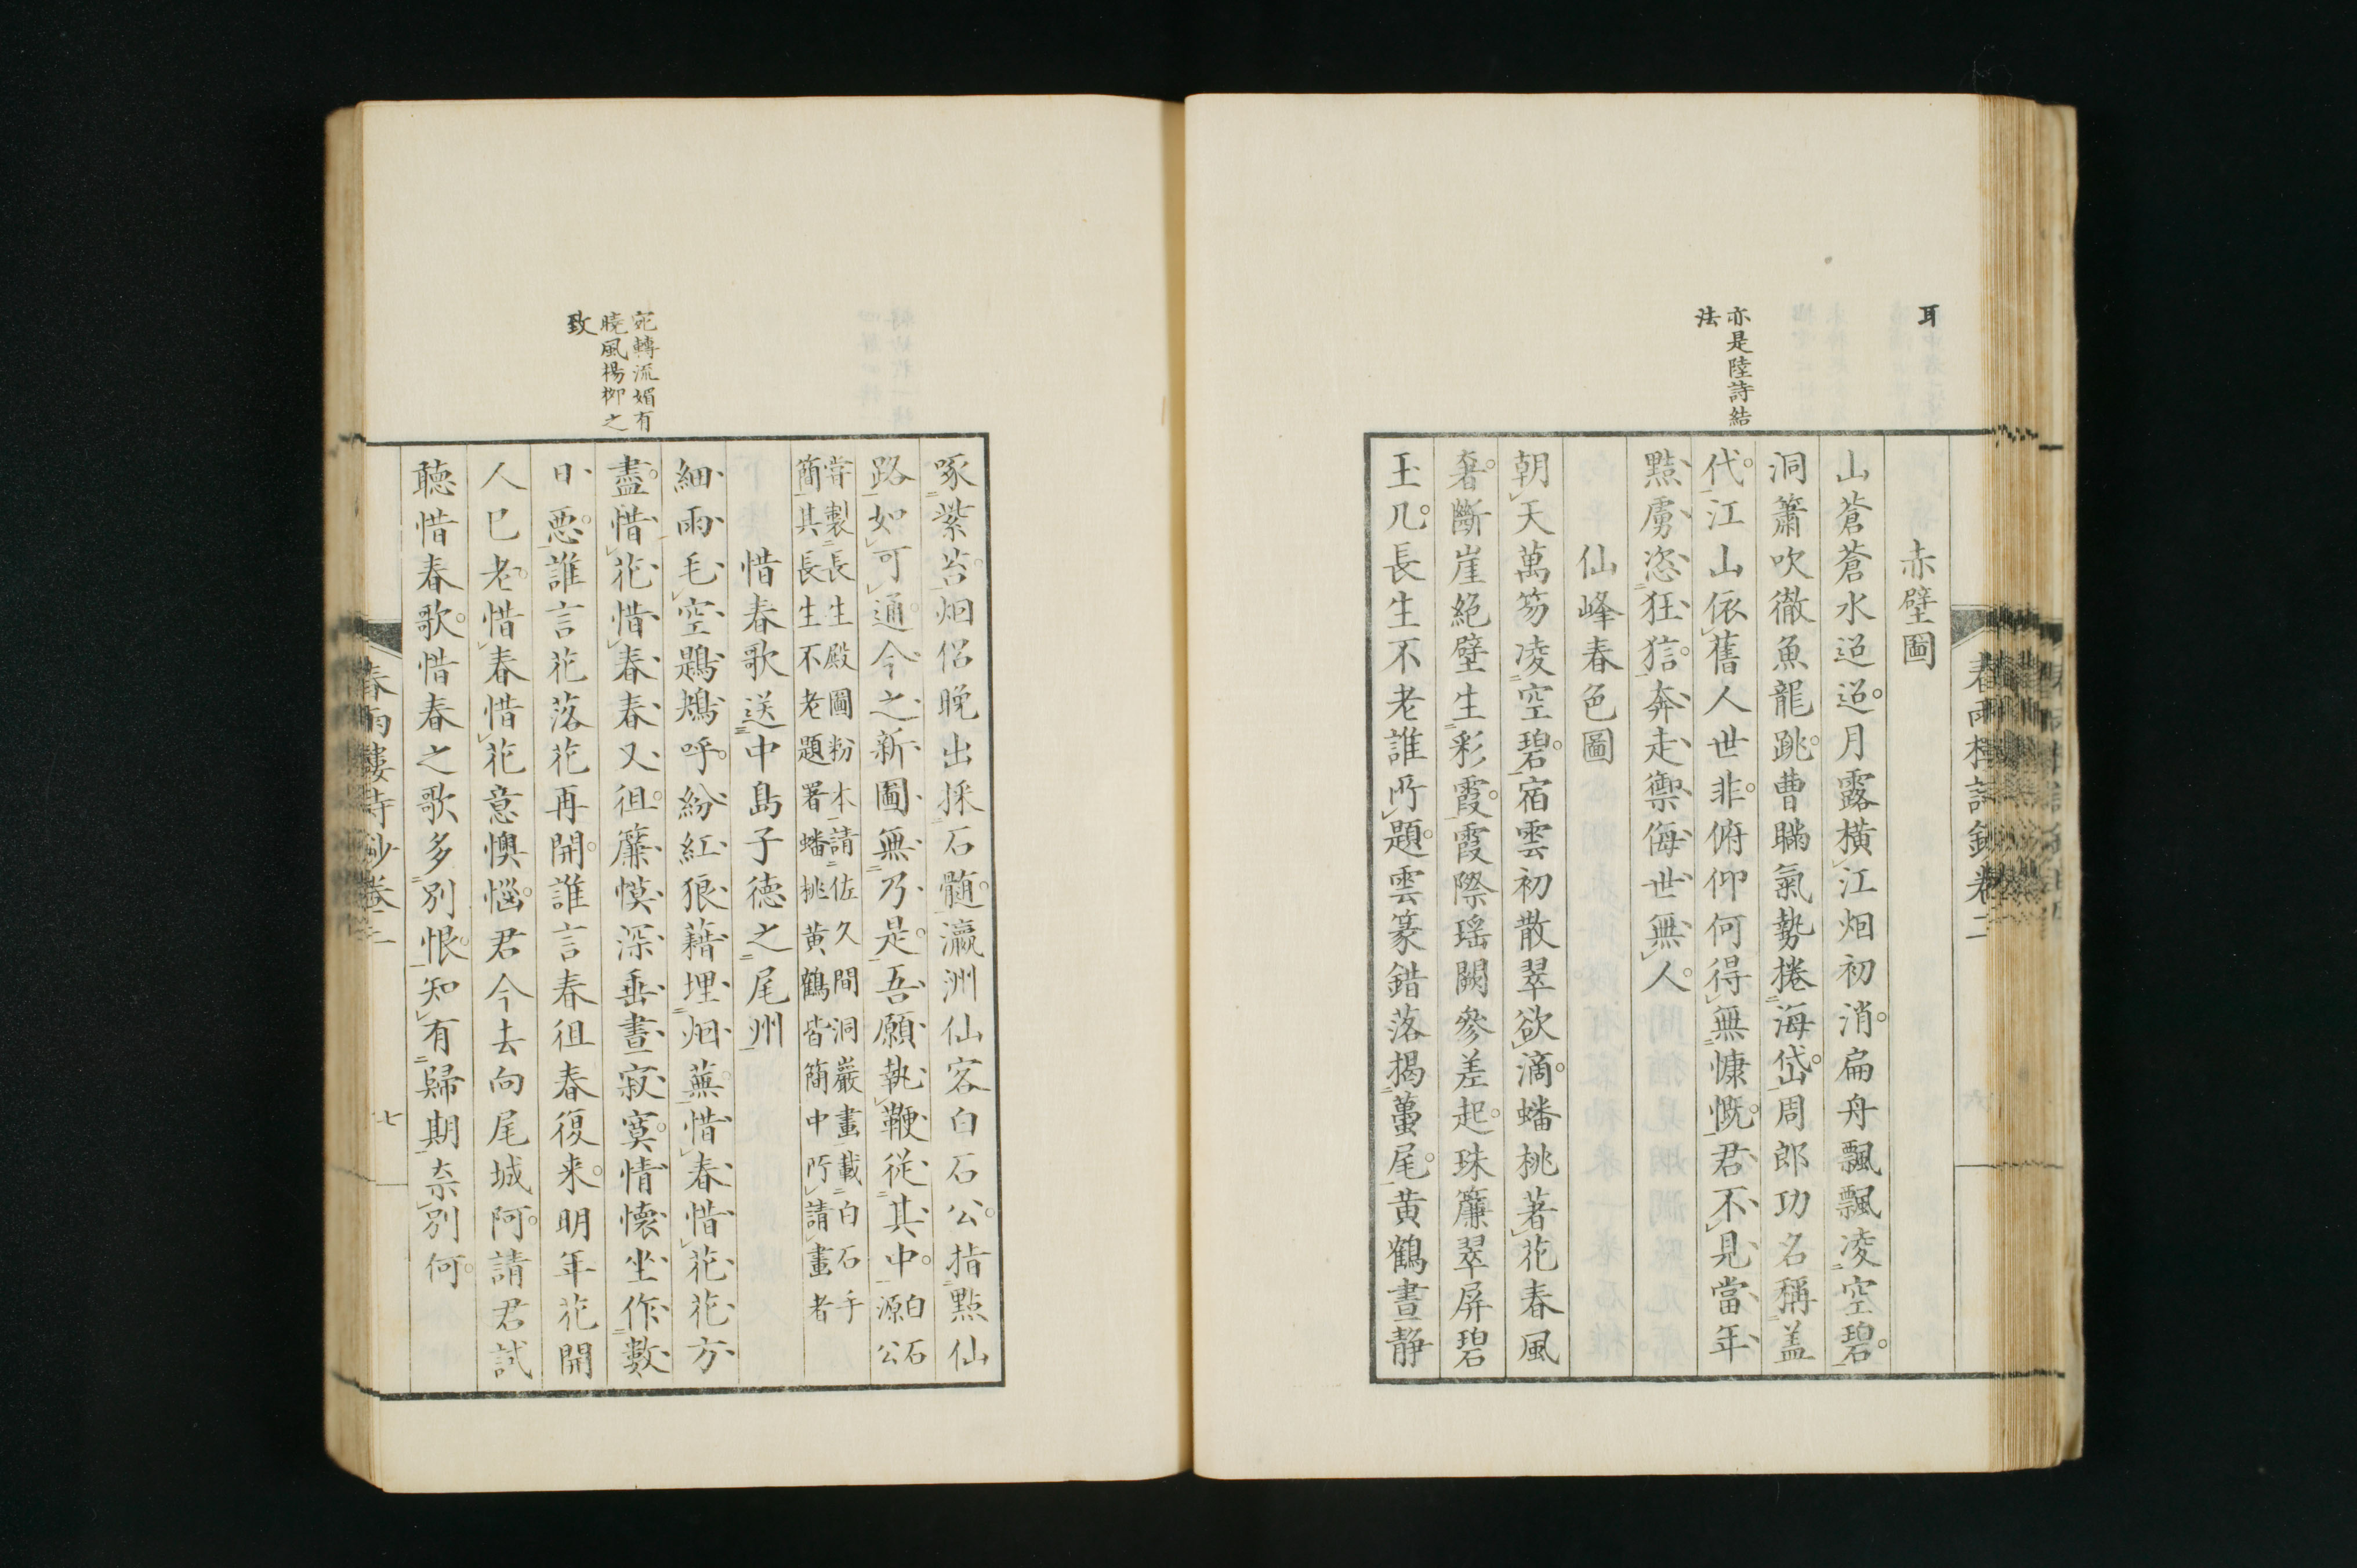 耳
亦是陸詩結
法
赤壁圖
山蒼蒼水迢迢月露橫江烟初消扁舟飄飄凌空碧
洞簫吹徹魚龍跳曹瞞氣勢捲海岱周郎功名稱蓋
代江山依舊人世非俯仰何得無慷慨君不見當年
黠虜恣狂狺奔走禦侮世無人
仙峰春色圖
朝天萬笏凌空碧宿雲初散翠欲滴蟠桃著花春風
奢斷崖絕壁生彩霞霞際瑤闕參差起珠簾翠屏碧
玉几長生不老誰所題雲篆錯落揭蠆尾黃鶴晝靜
春雨樓詩鈔卷二
啄紫苔烟侶晚出採石髓瀛洲仙客白石公指點仙
路如可通今之新圖無乃是吾願執鞭從其中白石
源公
嘗製長生殿圖粉本請佐久間洞巖畫載白石手
簡其長生不老題署蟠桃黃鶴皆簡中所請畫者
惜春歌送中島子德之尾州
宛轉流媚有
曉風楊柳之
致
細雨毛空鶗鴂呼紛紅狼藉埋烟蕪惜春惜花花方
盡惜花惜春春又徂簾幙深垂晝寂寞情懷坐作數
日惡誰言花落花再開誰言春徂春復来明年花開
人已老惜春惜花意懊惱君今去向尾城阿請君試
聽惜春歌惜春之歌多別恨知有歸期奈別何
春雨樓詩鈔卷二
七